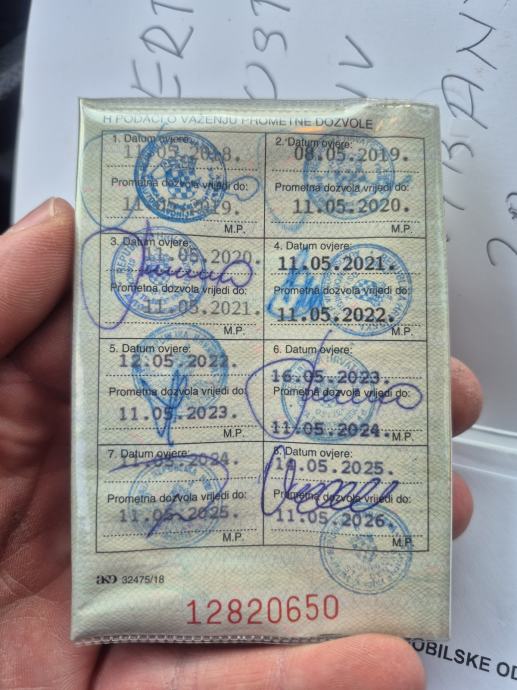 H PODACI O VAŽENJU PROMETNE DOZVOLE
1. Datum ovjere:
11.05.2018.
Prometna dozvola vrijedi do:
11.05.2019.
M.P.
2. Datum ovjere:
08.05.2019.
Prometna dozvola vrijedi do:
11.05.2020.
M.P.
3. Datum ovjere:
.05.2020.
Prometna dozvola vrijedi do:
11.05.2021.
M.P.
4. Datum ovjere:
11.05.2021.
Prometna dozvola vrijedi do:
11.05.2022.
M.P.
5. Datum ovjere:
12.05.2022.
Prometna dozvola vrijedi do:
11.05.2023.
M.P.
6. Datum ovjere:
16.05.2023.
Prometna dozvola vrijedi do:
11.05.2024.
M.P.
7. Datum ovjere:
11.05.2024.
Prometna dozvola vrijedi do:
11.05.2025.
M.P.
8. Datum ovjere:
.05.2025.
Prometna dozvola vrijedi do:
11.05.2026.
M.P.
32475/18
12820650
OBILSKE OD